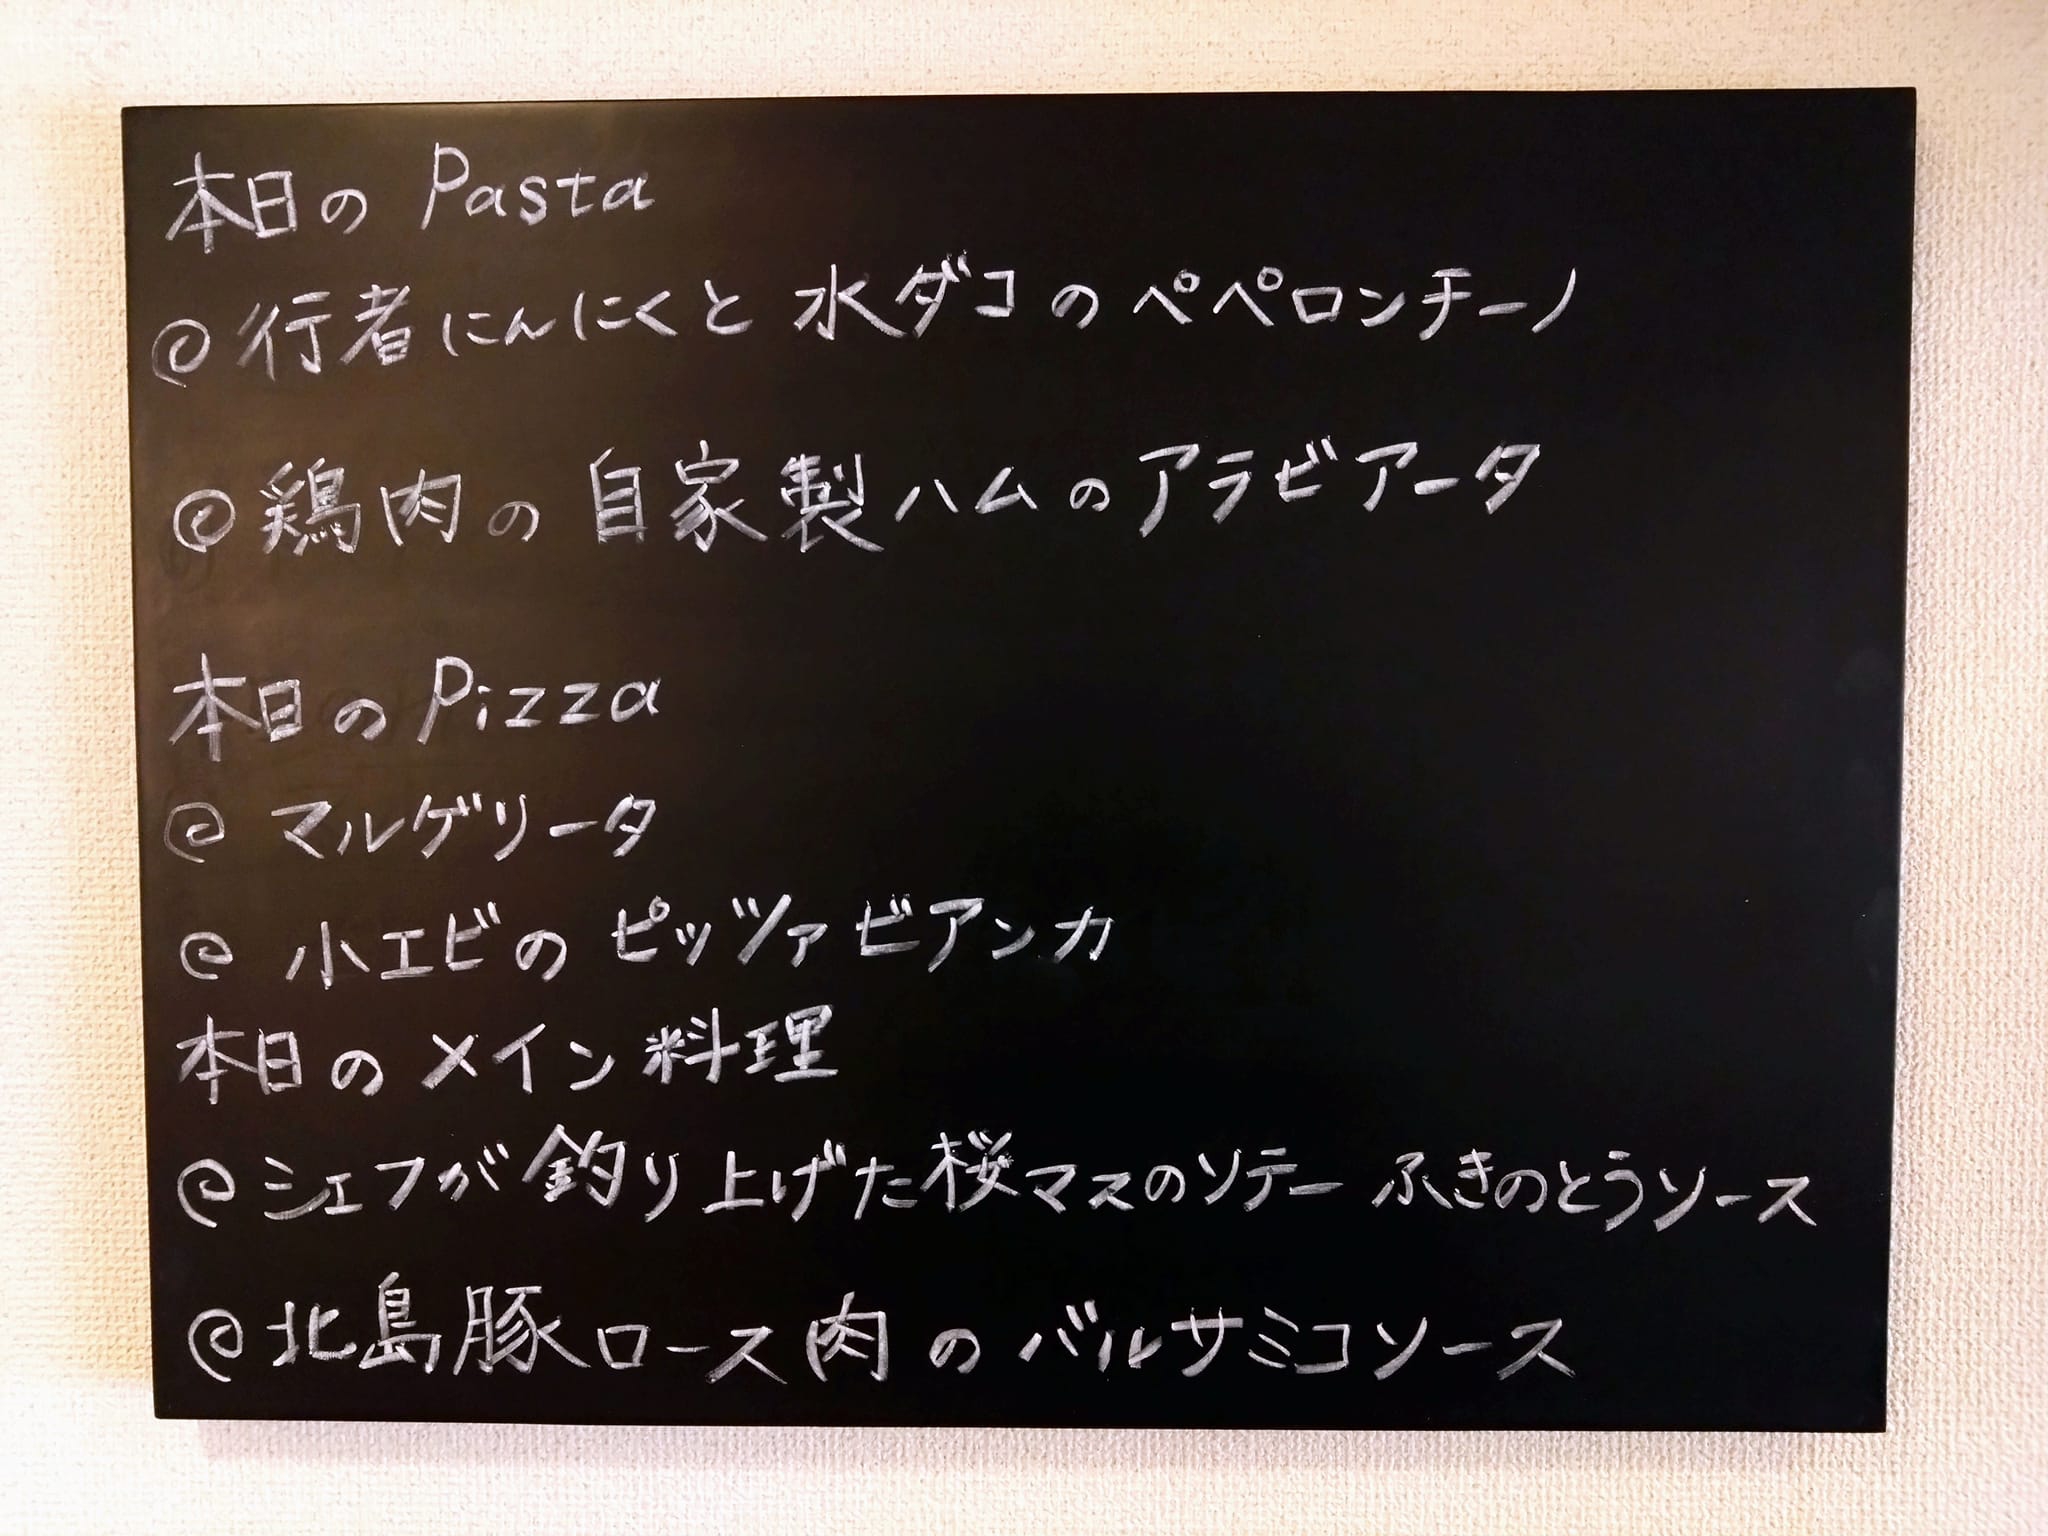 本日の Pasta
@ 行者にんにくと 水ダコのペペロンチーノ
@ 鶏肉の 自家製ハムのアラビアータ
本日の Pizza
@ マルゲリータ
@ 小エビの ピッツァ ビアンカ
本日の メイン 料理
@ シェフが 釣り上げた桜マスのソテー ふきのとうソース
@ 北島豚ロース肉のバルサミコソース